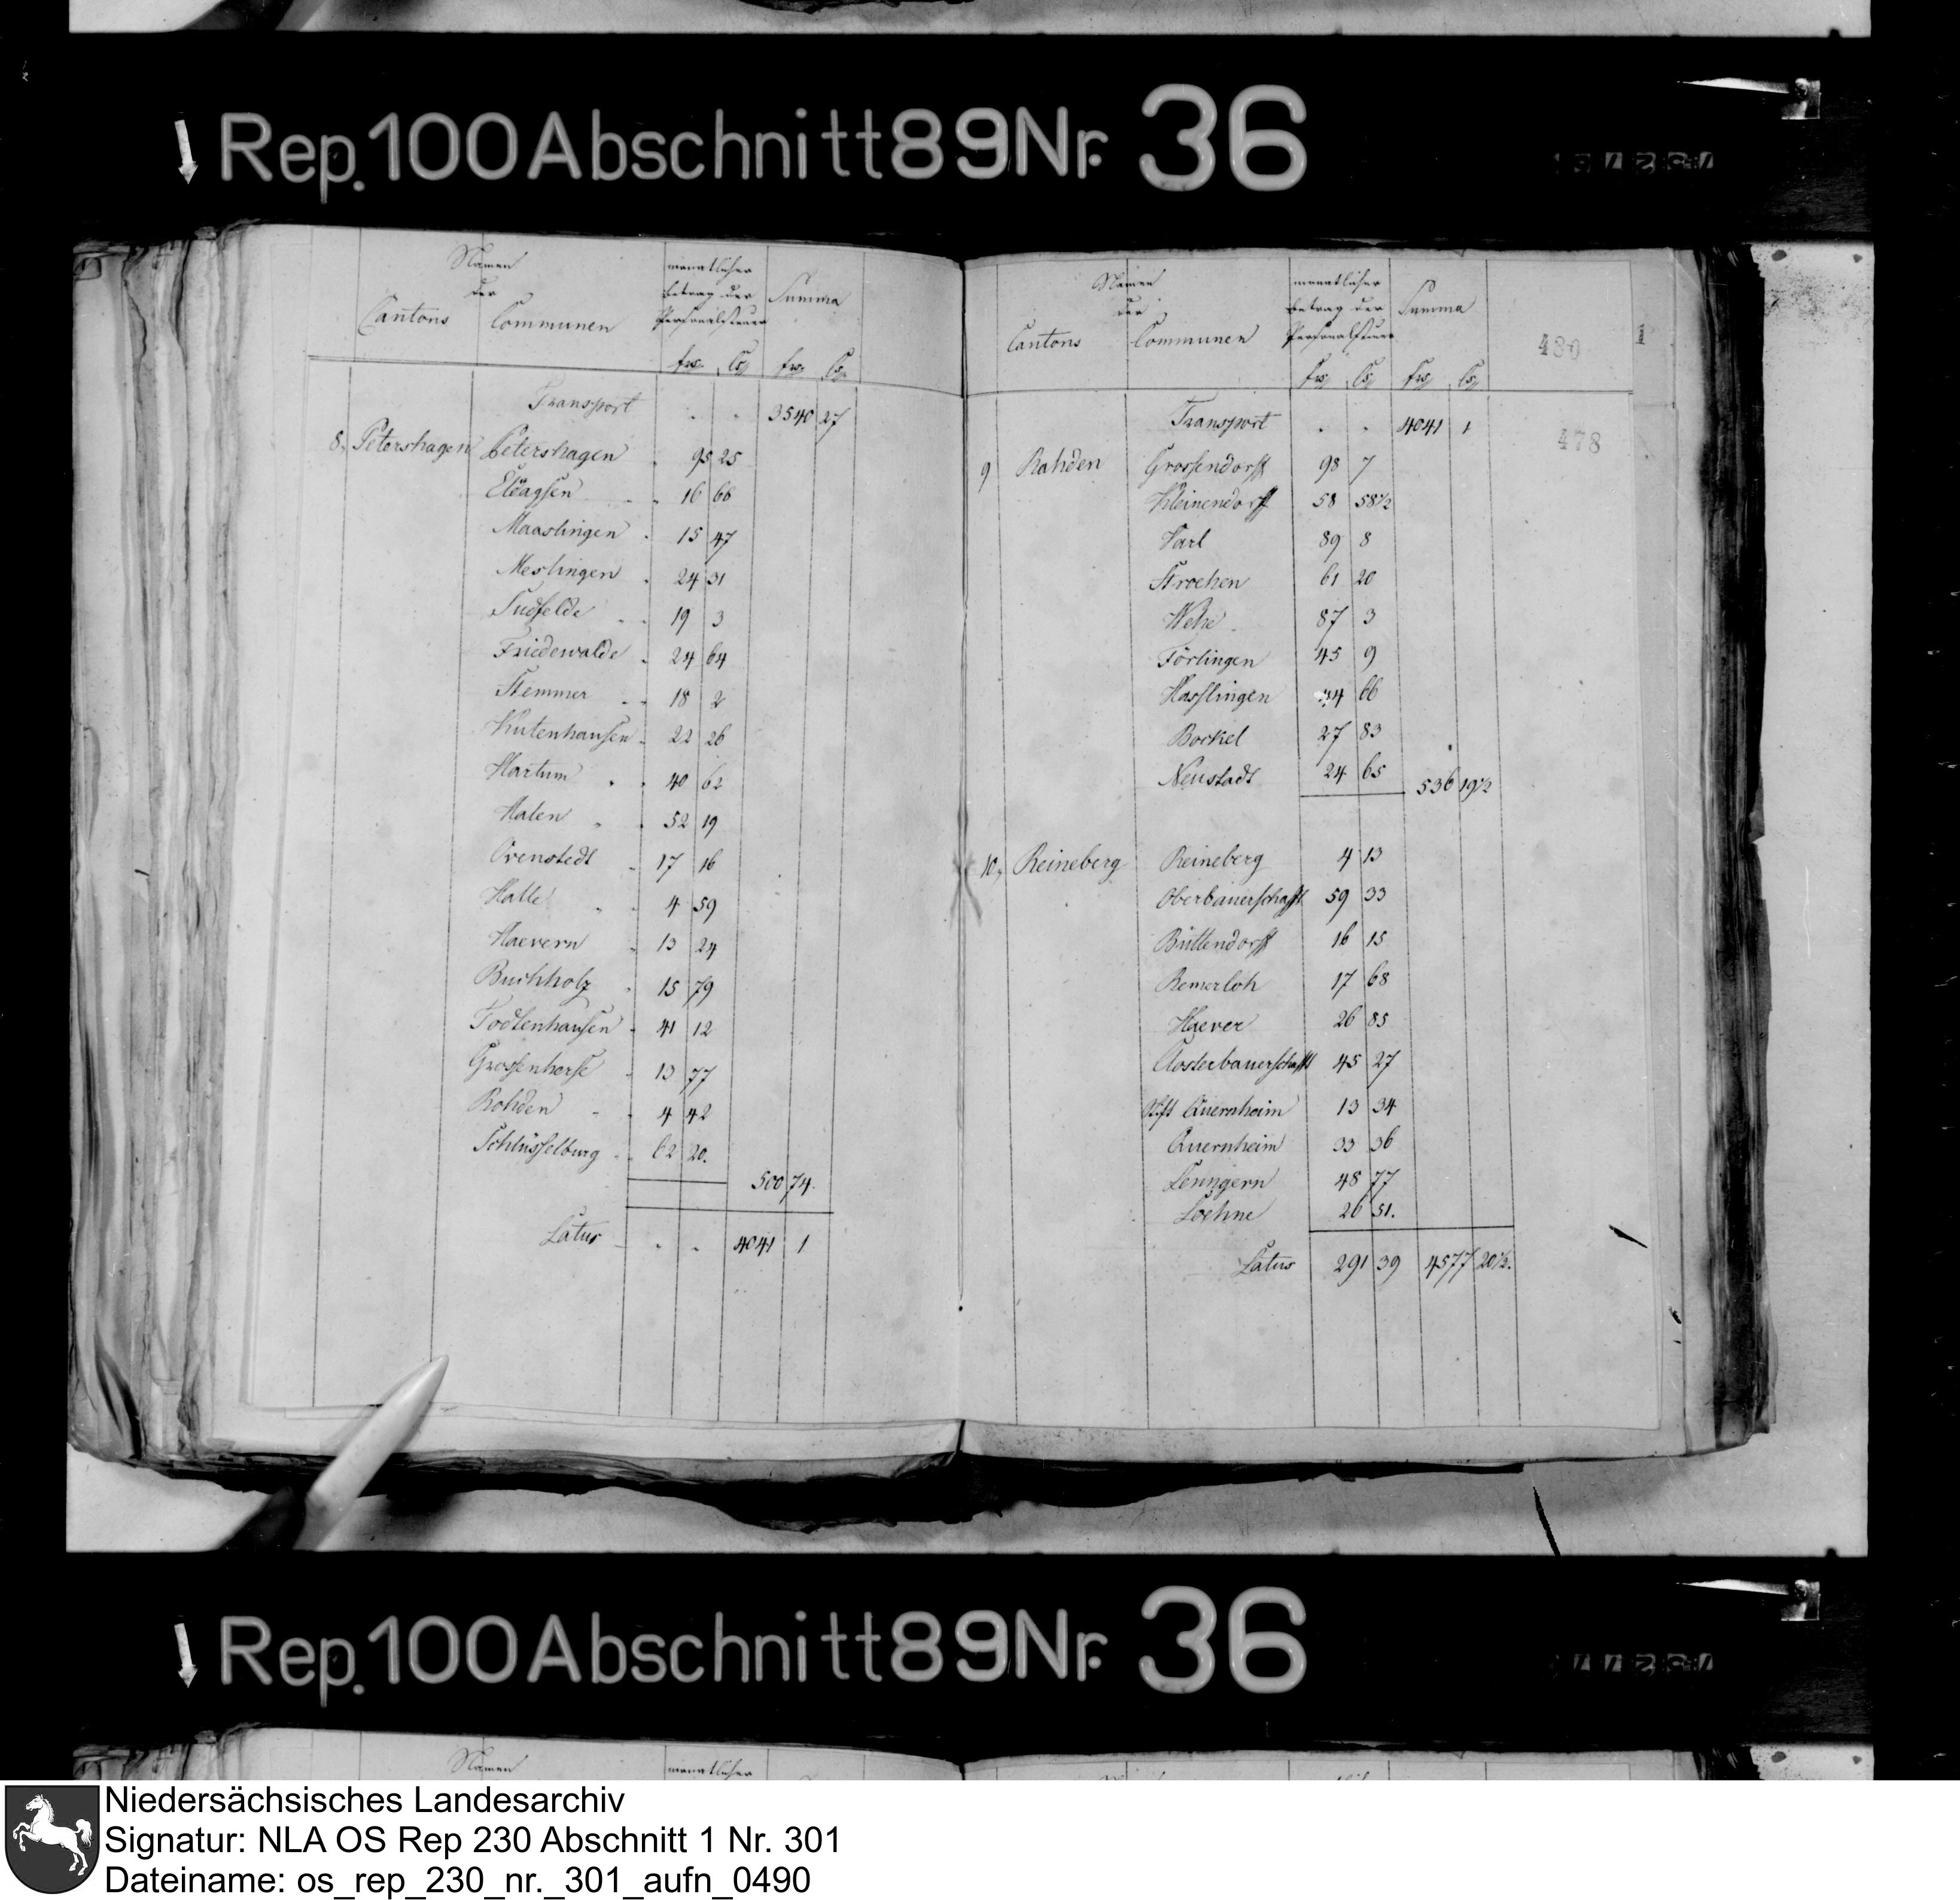 Rep. 100 Abschnitt 89 Nr. 36
Namen der
monatlicher Betrag der Personalsteuer
Summa
Cantons Communen
frs. Cs. frs. Cs.
Transport . . 3540 27
8, Petershagen Petershagen 95 25
Eldagsen 16 66
Maaslingen 15 47
Meslingen 24 31
Südfelde 19 3
Friedewalde 24 64
Stemmer 18 2
Kutenhausen 22 26
Hartum 40 62
Halen 52 19
Ovenstedt 17 16
Halle 4 59
Haevern 13 24
Buchholz 15 79
Todtenhausen 41 12
Grossenherse 13 77
Rohden 4 42
Schlüsselburg 62 20.
500 74.
Latus . . 4041 1
Namen der
monatlicher Betrag der Personalsteuer
Summa
Cantons Communen
frs. Cs. frs. Cs.
480
478
Transport . . 4041 1
9 Rahden Grossendorff 98 7
Kleinendorff 58 58½
Varl 89 8
Stroehen 61 20
Wehe 87 3
Törlingen 45 9
Hasslingen 44 66
Borkel 27 83
Neustadt 24 65
536 19½
10, Reineberg Reineberg 4 13
Oberbauerschafft 59 33
Büttendorff 16 15
Remerloh 17 68
Haever 26 85
Closterbauerschafft 45 27
Stift Quernheim 13 34
Quernheim 33 36
Lenngern 48 77
Loehne 26 51.
Latus 291 39 4577 20½.
Rep. 100 Abschnitt 89 Nr. 36
Namen
monatlicher
Niedersächsisches Landesarchiv
Signatur: NLA OS Rep 230 Abschnitt 1 Nr. 301
Dateiname: os_rep_230_nr._301_aufn_0490